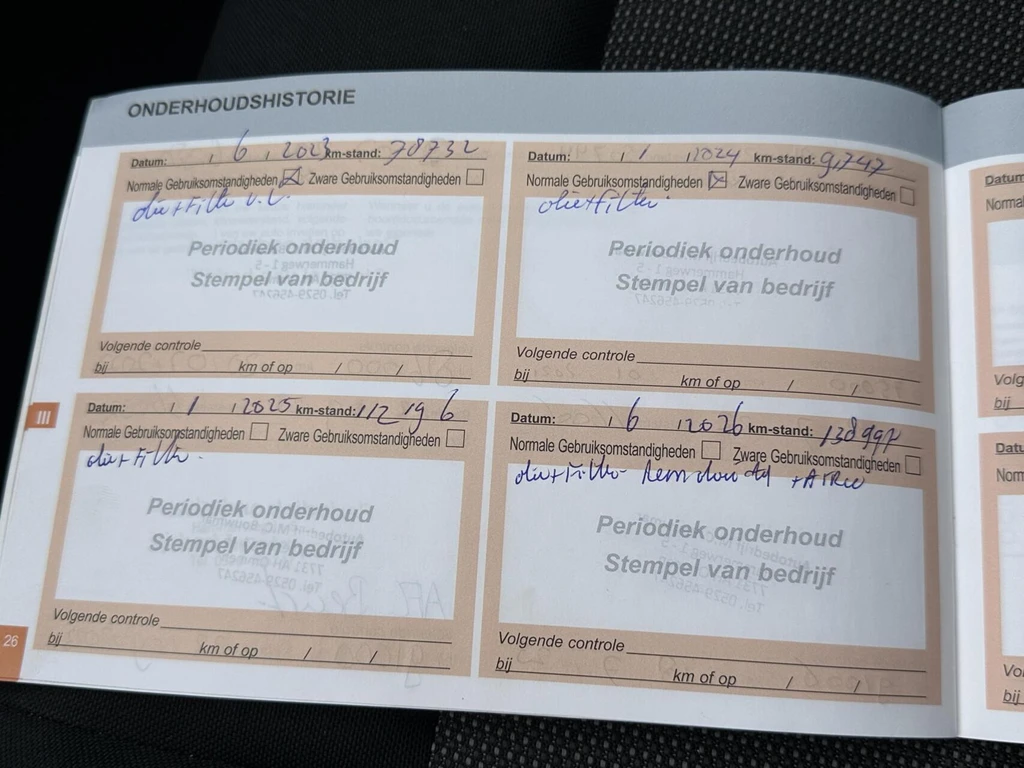 ONDERHOUDSHISTORIE
Datum: , 6 , 2023 km-stand: 78732
Normale Gebruiksomstandigheden Zware Gebruiksomstandigheden
olie + Filter
Periodiek onderhoud
Stempel van bedrijf
Volgende controle
bij km of op / /
Datum: , 1 , 2024 km-stand: 9,747
Normale Gebruiksomstandigheden Zware Gebruiksomstandigheden
olie + filter
Periodiek onderhoud
Stempel van bedrijf
Volgende controle
bij km of op / /
III
Datum: , 1 , 2025 km-stand: 112 196
Normale Gebruiksomstandigheden Zware Gebruiksomstandigheden
olie + Filter.
Periodiek onderhoud
Stempel van bedrijf
Volgende controle
bij km of op / /
Datum: , 6 , 2026 km-stand: 138997
Normale Gebruiksomstandigheden Zware Gebruiksomstandigheden
olie + Filter
Periodiek onderhoud
Stempel van bedrijf
Volgende controle
bij km of op / /
26